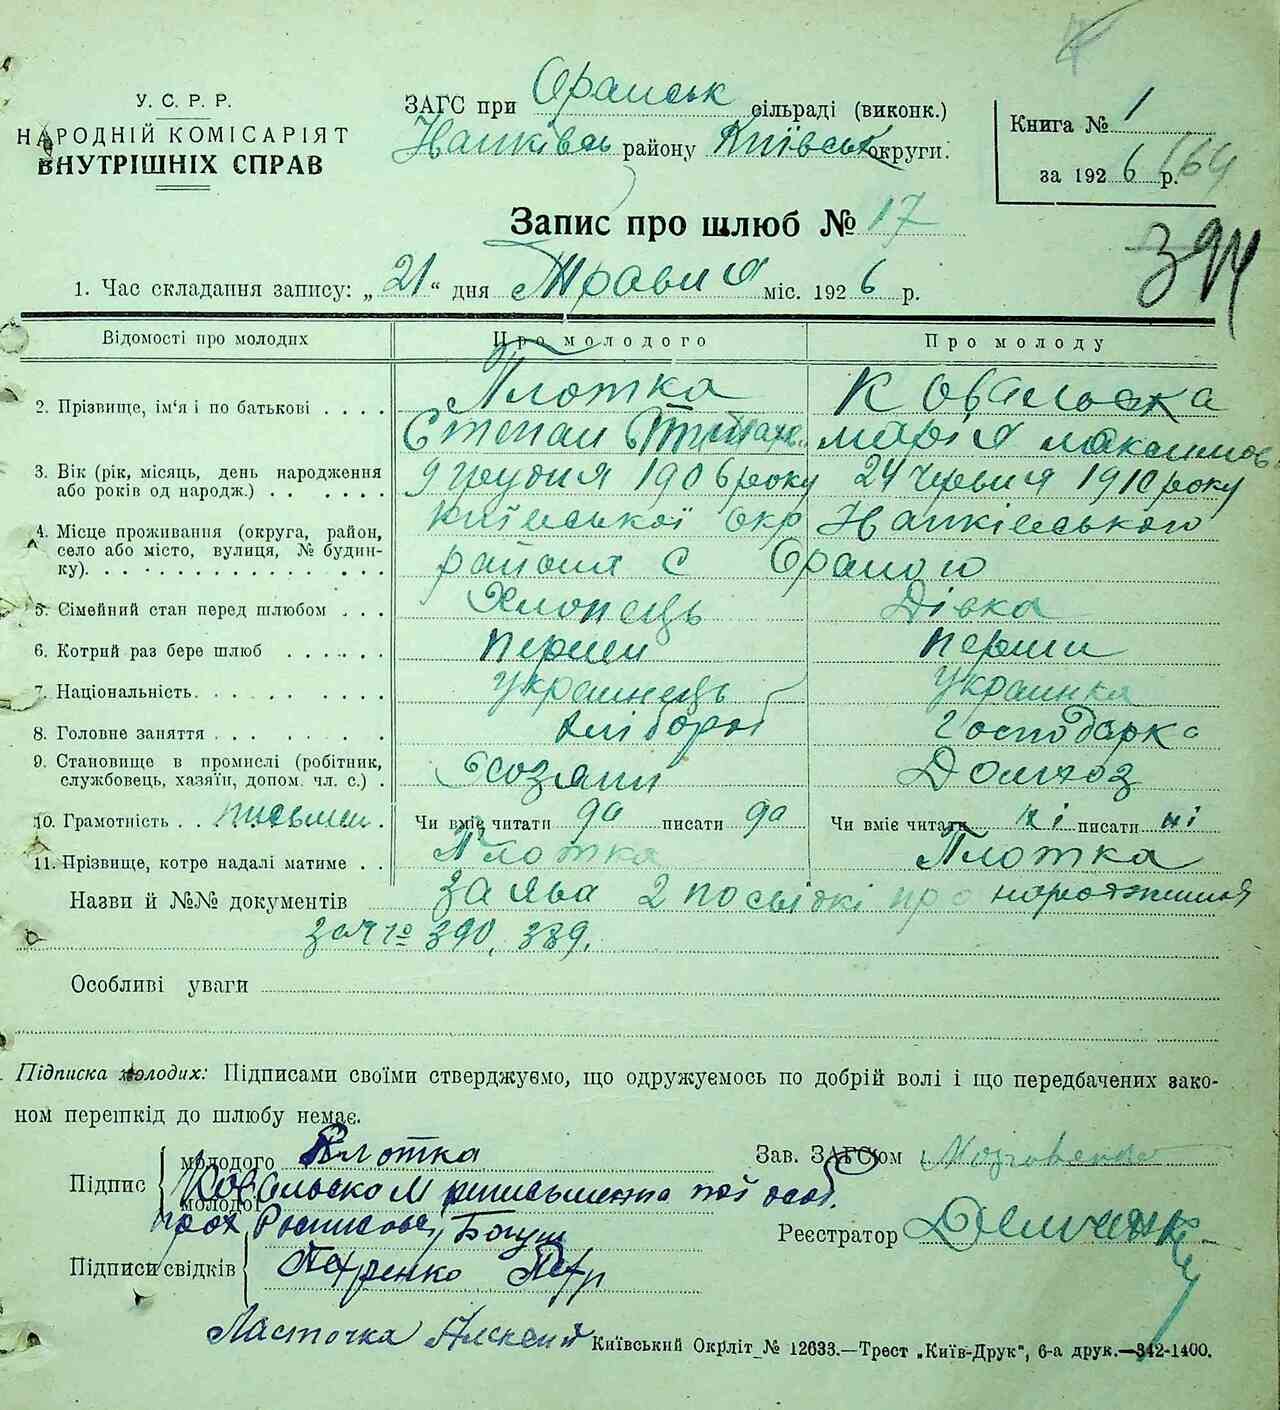 У. С. Р. Р.
НАРОДНІЙ КОМІСАРІЯТ
ВНУТРІШНІХ СПРАВ
ЗАГС при Ораиськ сільраді (виконк.)
району Київськ округи.
Книга № 1
за 1926 р. 164
Запис про шлюб № 17
394
1. Час складання запису: „21“ дня Травня міс. 1926 р.
Відомості про молодих Про молодого Про молоду
2. Прізвище, ім'я і по батькові . . . . Плотка Ковальска
Степан Марія Максимов.
3. Вік (рік, місяць, день народження або років од народж.) . . . . . . 9 грудня 1906 року 24 червня 1910 року
4. Місце проживання (округа, район, село або місто, вулиця, № будинку). Київської окр
района с Ораного
5. Сімейний стан перед шлюбом . . . Хлопець Дівка
6. Котрий раз бере шлюб . . . . . . перши перши
7. Національність. . . . . . . . . Украинець Украинка
8. Головне заняття . . . . . . . хлібороб господарка
9. Становище в промислі (робітник, службовець, хазяїн, допом. чл. с.) . Хозяин Домхоз
10. Грамотність . . письмен. Чи вміє читати да писати да Чи вміє читати ні писати ні
11. Прізвище, котре надалі матиме . . Плотка Плотка
Назви й №№ документів заява 2 посвідкі про народження
за № 390, 389.
Особливі уваги
Підписка молодих: Підписами своїми стверджуємо, що одружуємось по добрій волі і що передбачених зако-
ном перешкід до шлюбу немає.
Підпис молодого Плотка Зав. ЗАГС'ом
молодої Ковальска М
Реєстратор
Підписи свідків Петренко Петр
Ласточка Алексей
Київський Окрліт № 12633.—Трест „Київ-Друк“, 6-а друк.—342-1400.